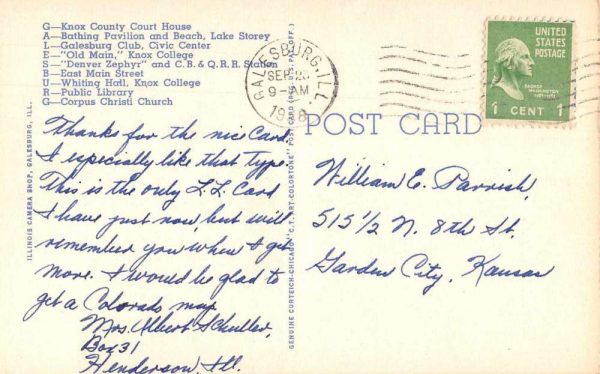 G—Knox County Court House
A—Bathing Pavilion and Beach, Lake Storey
L—Galesburg Club, Civic Center
E—"Old Main," Knox College
S—"Denver Zephyr" and C. B. & Q. R. R. Station
B—East Main Street
U—Whiting Hall, Knox College
R—Public Library
G—Corpus Christi Church
GALESBURG, ILL.
SEP
9-AM
UNITED
STATES
POSTAGE
GEORGE
WASHINGTON
1 CENT 1
POST CARD
Thanks for the nice Card
I especially like that type.
This is the only L.L. Card
I have just now, but will
remember you when I get
more. I would be glad to
get a Colorado map
Mrs. Albert Schuller,
Box 31
Henderson, Ill.
William E. Parrish,
515 1/2 N. 8th St.
Garden City, Kansas
ILLINOIS CAMERA SHOP, GALESBURG, ILL.
GENUINE CURTEICH-CHICAGO "C.T. ART-COLORTONE" POST CARD (REG. U.S. PAT. OFF.)